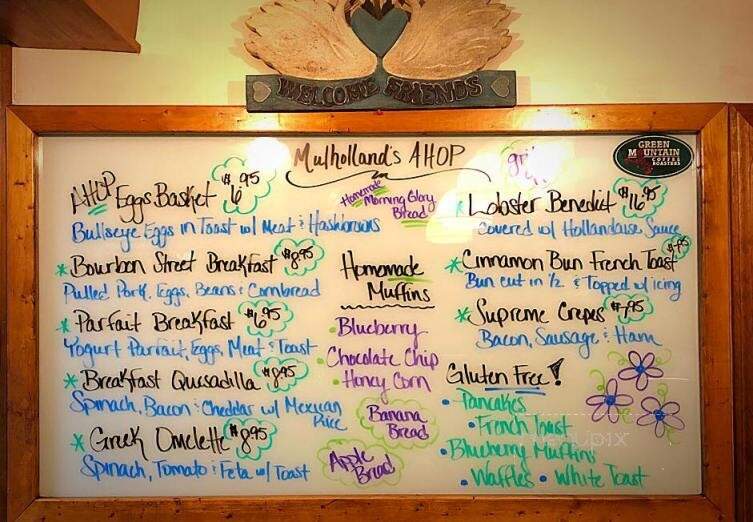 WELCOME FRIENDS
Mulholland's AHOP
GREEN
MOUNTAIN
COFFEE
ROASTERS
AHOP Eggs Basket $6.95
Bullseye Eggs in Toast w/ Meat & Hashbrowns
* Bourbon Street Breakfast $8.95
Pulled Pork, Eggs, Beans & Cornbread
* Parfait Breakfast $6.95
Yogurt Parfait, Eggs, Meat & Toast
* Breakfast Quesadilla $8.95
Spinach, Bacon & Cheddar w/ Mexican
Rice
* Greek Omelette $8.95
Spinach, Tomato & Feta w/ Toast
Homemade
Morning Glory
Bread
Homemade
Muffins
• Blueberry
Chocolate Chip
• Honey Corn
Banana
Bread
Apple
Bread
* Lobster Benedict $16.95
Covered w/ Hollandaise Sauce
* Cinnamon Bun French Toast
Bun cut in 1/2 & Topped w/ icing
* Supreme Crepes $7.95
Bacon, Sausage & Ham
Gluten Free!
• Pancakes
• French Toast
• Blueberry Muffins
• Waffles • White Toast